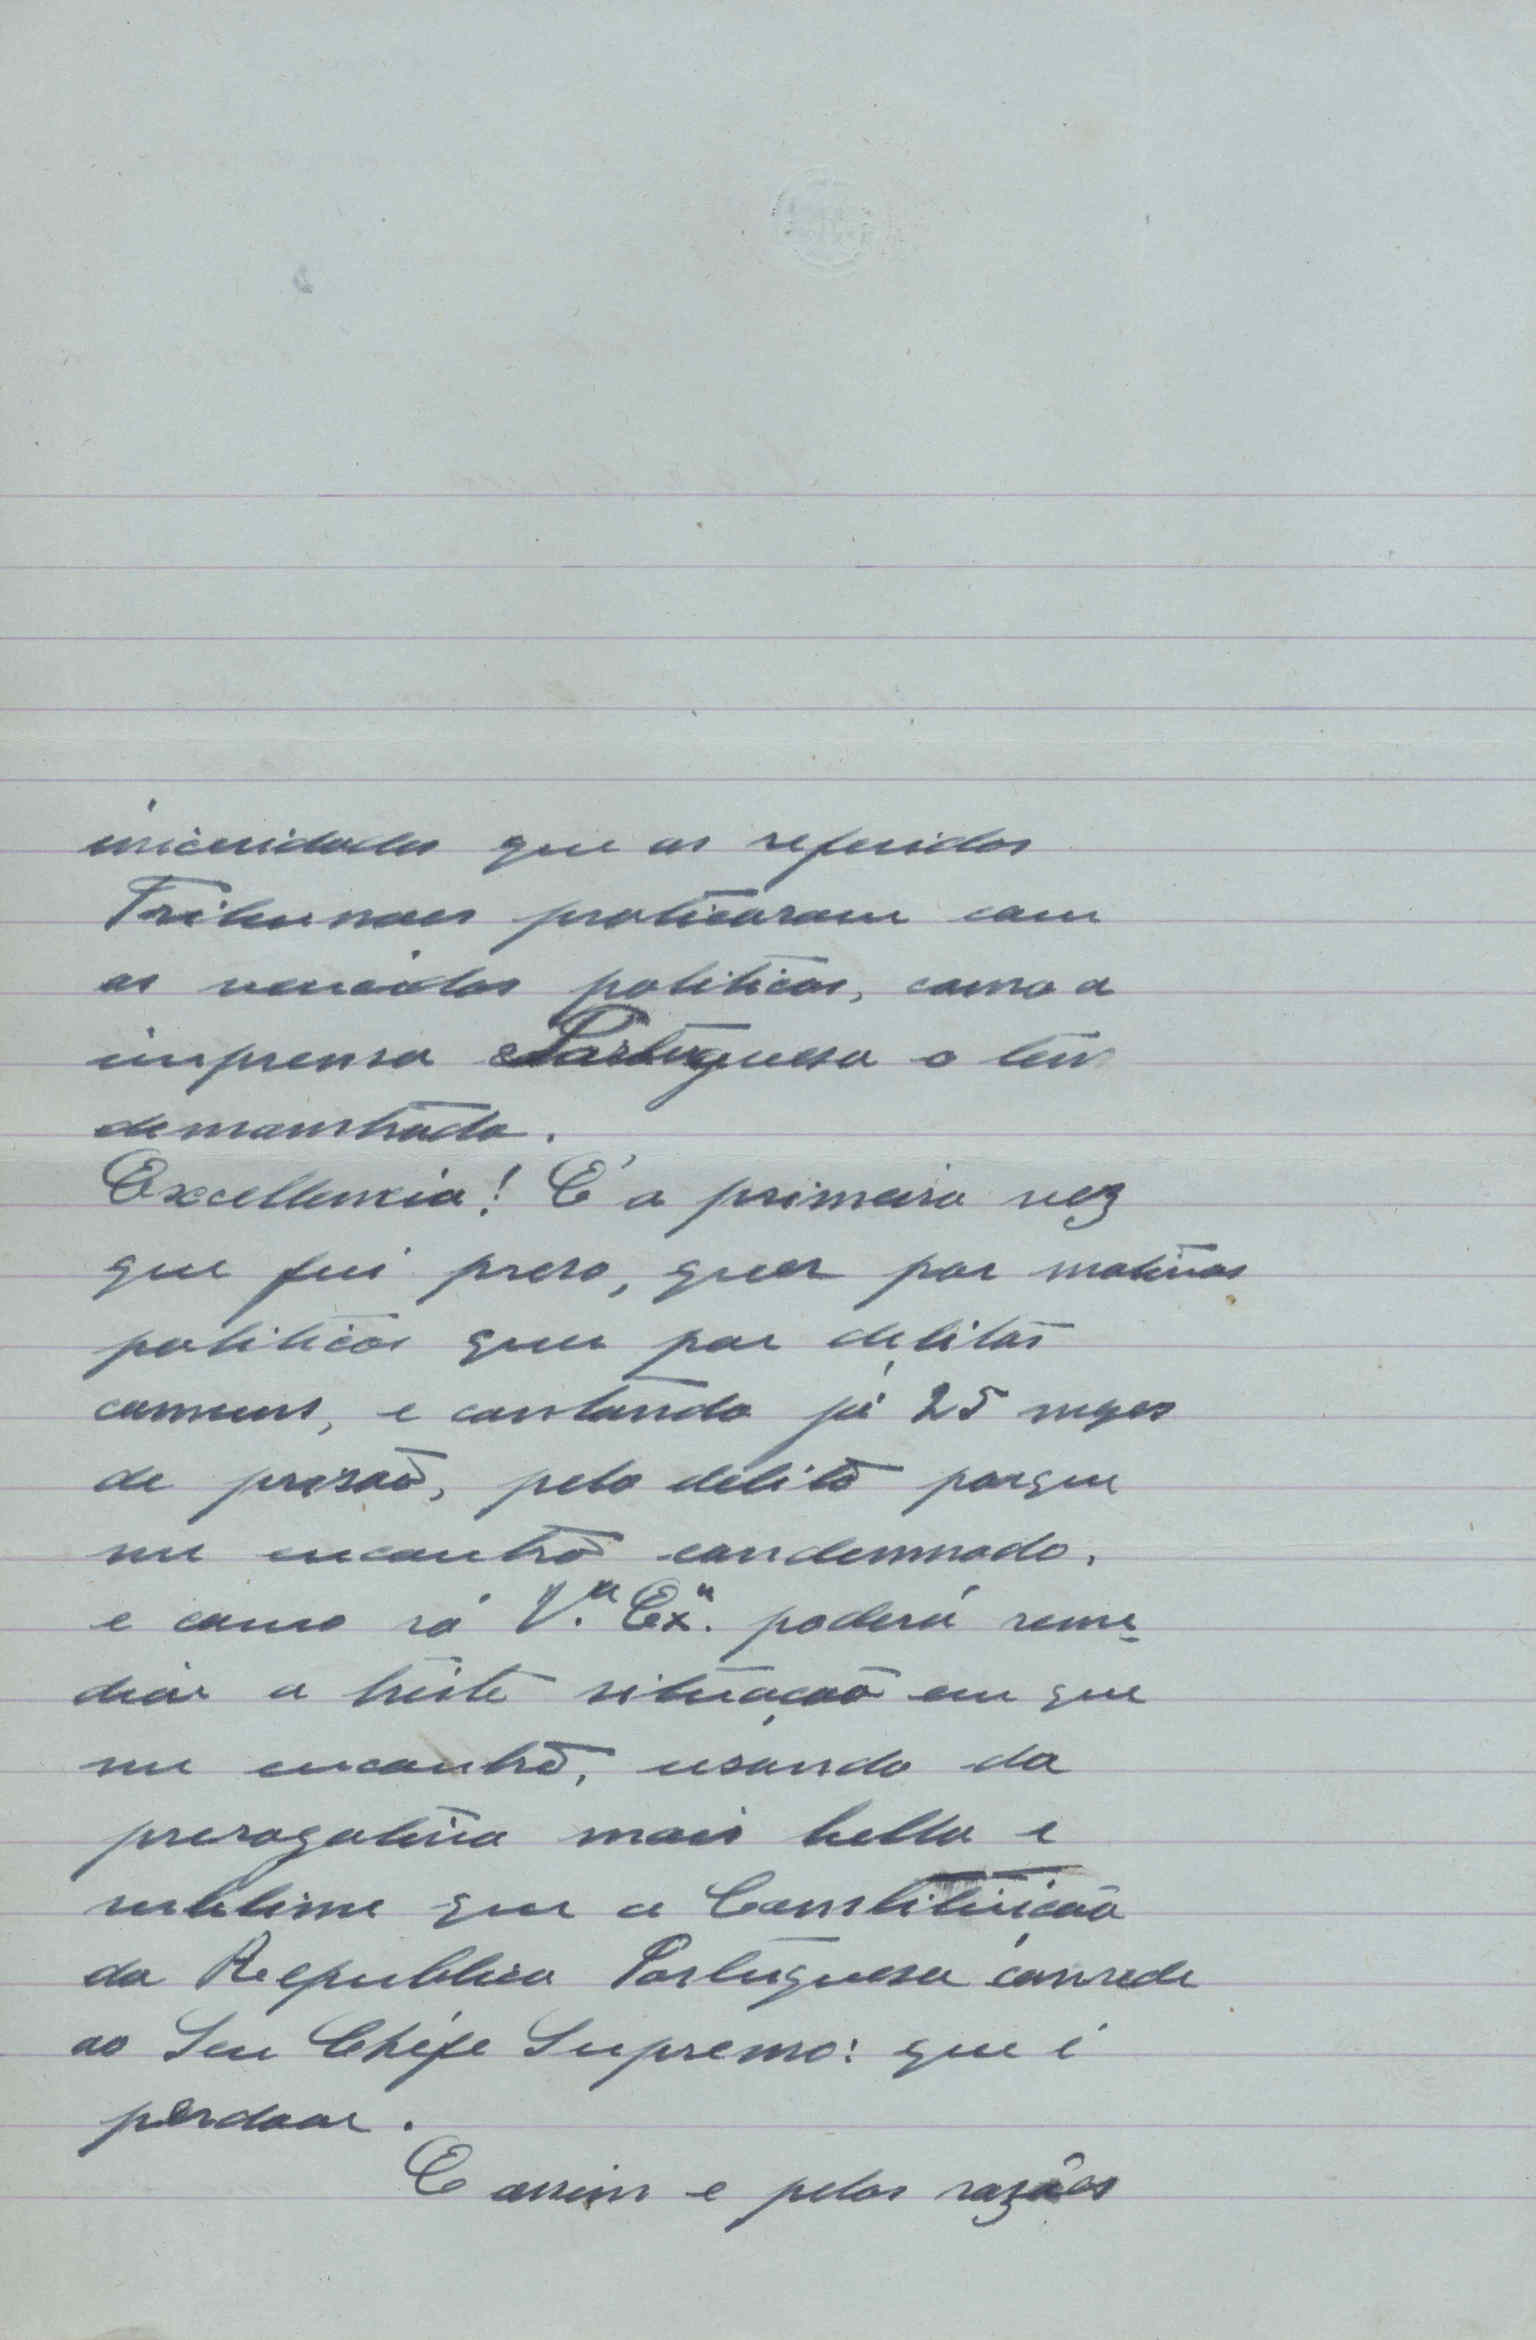 iniceridades que os referidos
Tribunaes praticaram com
os vencidos politicos, como a
imprensa Portuguesa o tem
demonstrado.
Excellencia! E' a primeira vez
que fui preso, quer por motivos
politicos quer por delitos
comuns, e contando já 25 mezes
de prisão, pelo delito porque
me encontro condemnado,
e como só V.ª Ex.ª poderá reme-
diar a triste situação em que
me encontro, usando da
prerogativa mais bella e
sublime que a Constituição
da Republica Portuguesa concede
ao Seu Chéfe Supremo: que é
perdoar.
E assim e pelas razões